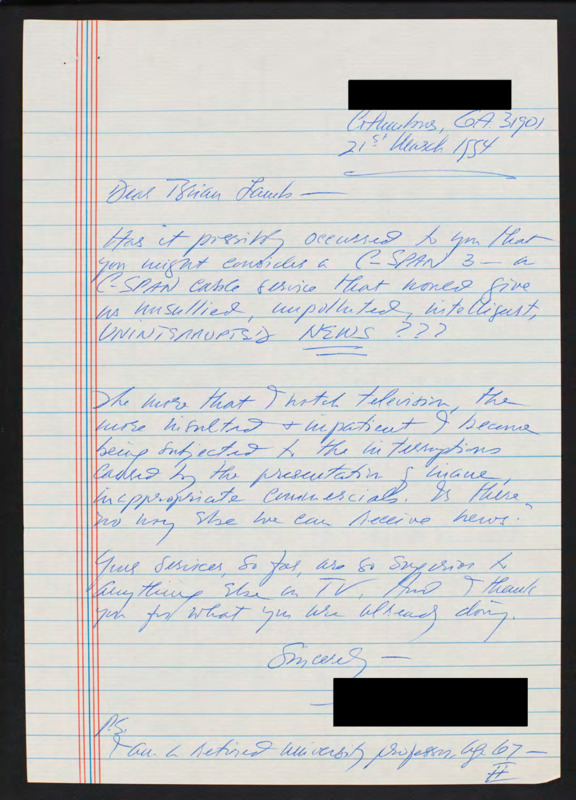 Columbus, GA 31901
21st March 1994
Dear Brian Lamb —
Has it possibly occurred to you that
you might consider a C-SPAN 3 — a
C-SPAN cable service that would give
us unsullied, unpolluted, intelligent,
UNINTERRUPTED NEWS ???
The more that I watch television, the
more insulted & impatient I become
being subjected to the interruptions
caused by the presentation of inane,
inappropriate commercials. Is there
no way else we can receive news?
Your services, so far, are so superior to
anything else on TV. And I thank
you for what you are already doing.
Sincerely —
P.S.
I am a retired university professor, age 67 —